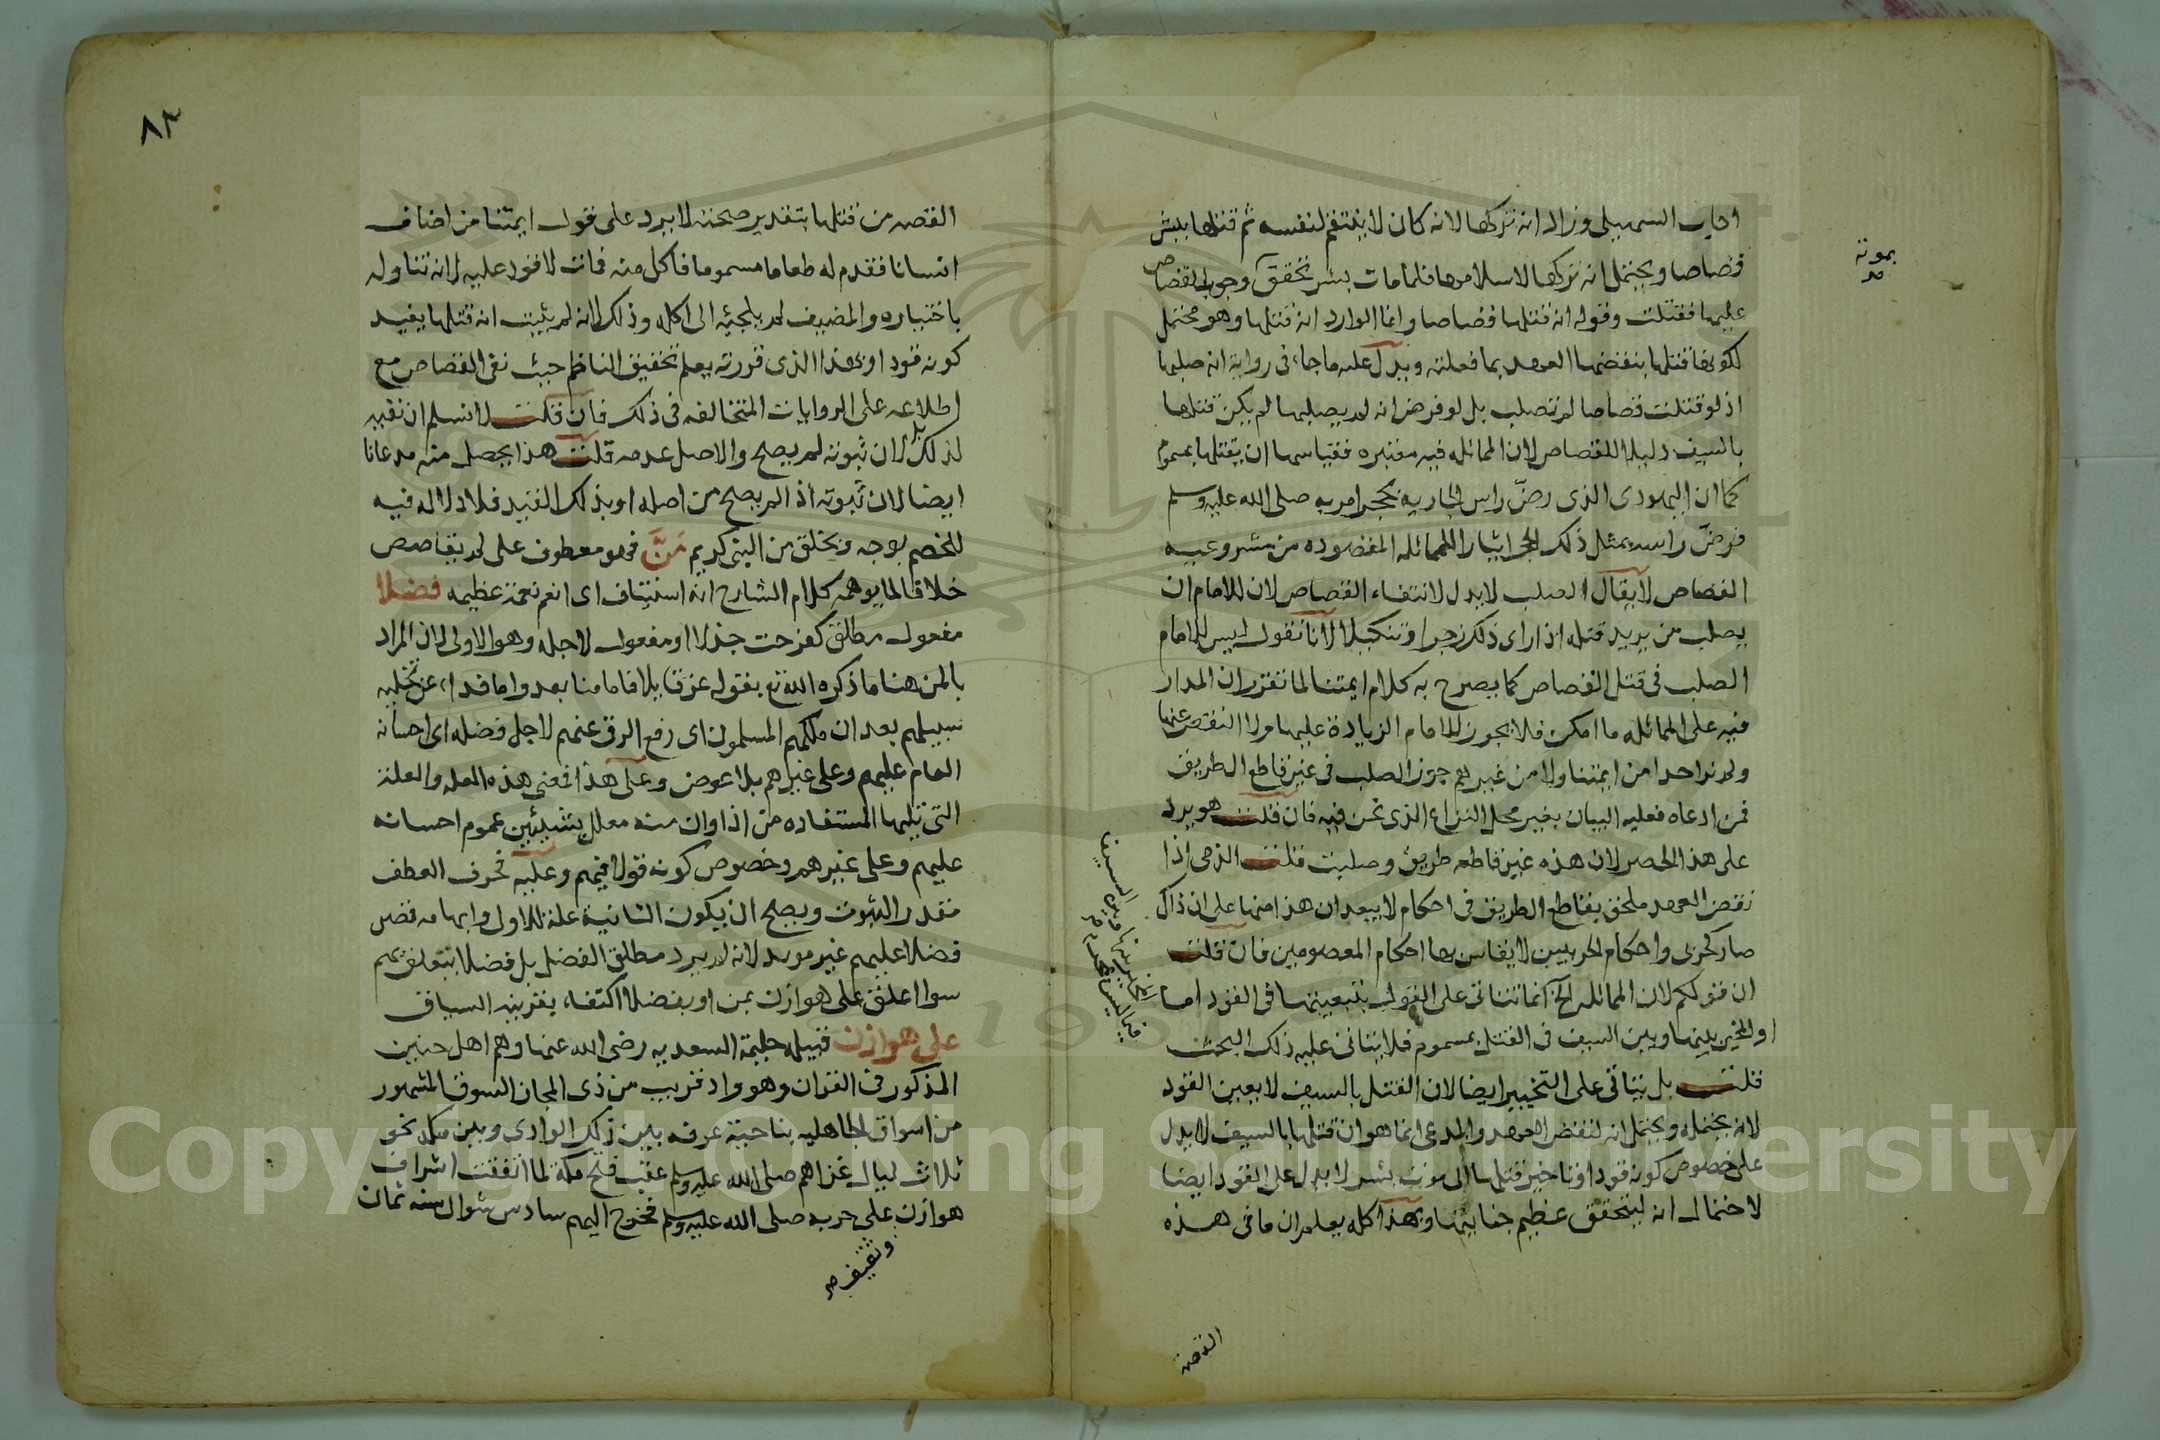 اجاب السهيلي وزاد انه تركها لانه كان لا ينتقم لنفسه ثم قتلها ببشر
قصاصا ويحتمل انه تركها لاسلامها فلما مات بشر تحقق وجوب القصاص
عليها فقتلت وقوله انه قتلها قصاصا وانما الوارد انه قتلها وهو محتمل
لكونها قتلها بنقضها العهد بما فعلته ويدل عليه ما جاء في رواية انه صلبها
اذ لو قتلت قصاصا لم تصلب بل لو فرض انه لم يصلبها لم يكن قتلها
بالسيف دليلا للقصاص لان المماثله فيه معتبره فقياسها ان يقتلها بمسموم
كما ان اليهودى الذى رضّ راس الجاريه بحجر امر به صلى الله عليه وسلم
فرضّ راسه بمثل ذلك الحجر ايثارا للمماثله المقصوده من مشروعيه
القصاص لا يقال الصلب لا يدل لانتفاء القصاص لان للامام ان
يصلب من يريد قتله اذا راى ذلك زجرا وتنكيلا لانا نقول ليس للامام
الصلب في قتل القصاص كما يصرح به كلام ايمتنا لما تقرر ان المدار
فيه على المماثله ما امكن فلا يجوز للامام الزيادة عليها ولا النقص عنها
ولم نر احدا من ايمتنا ولا من غيرهم جوز الصلب في غير قاطع الطريق
فمن ادعاه فعليه البيان بغير محل النزاع الذى نحن فيه فان قلت هو يرد
على هذا الحصر لان هذه غير قاطعه طريق وصلبت قلت الذمى اذا
نقض العهد ملحق بقاطع الطريق في احكام لا يبعد ان هذا منها على ان ذاك
صار كحربى واحكام الحربيين لا يقاس بها احكام المعصومين فان قلت
ان قولكم لان المماثله الخ انما تتاتى على القول بتعيينها في القود اما
او التخيير بينها وبين السيف في القتل بمسموم فلا يتاتى عليه ذلك البحث
قلت بل يتاتى على التخيير ايضا لان القتل بالسيف لا يعين القود
لانه يحتمله ويحتمل انه لنقض العهد والمدعى انما هو ان قتلها بالسيف لا يدل
على خصوص كونه قودا وتاخير قتلها الى موت بشر لا يدل على القود ايضا
لاحتمال انه لتحقق عظيم جنايتها وبهذا كله يعلم ان ما في هذه
بموته صح
القصه
٨٣
القصه من قتلها بتقدير صحته لا يرد على قول ايمتنا من اضاف
انسانا فقدم له طعاما مسموما فاكل منه فمات لا قود عليه لانه تناوله
باختياره والمضيف لم يلجئه الى اكله وذلك لانه لم يثبت انه قتلها بقيد
كونه قودا وبهذا الذى قررته يعلم تحقيق الناظم حيث نفى القصاص مع
اطلاعه على الروايات المتخالفه في ذلك فان قلت لا نسلم ان نفيه
لذلك بل لان ثبوته لم يصح والاصل عدمه قلت هذا يحصل منه مدعانا
ايضا لان ثبوته اذا لم يصح من اصله او بذلك القيد فلا دلاله فيه
للخصم بوجه وبخلق من النبي كريم مَنَّ فهو معطوف على لم يقاصص
خلافا لما يوهمه كلام الشارح انه استيناف اى انعم نعمة عظيمه فضلا
مفعول مطلق كفرحت جذلا او مفعول لاجله وهو الاولى لان المراد
بالمن هنا ما ذكره الله تع بقوله عز قايلا فاما منا بعد واما فداء عن تخليه
سبيلهم بعد ان ملكهم المسلمون اى رفع الرق عنهم لاجل فضله اى احسانه
العام عليهم وعلى غيرهم بلا عوض وعلى هذا فمعنى هذه العله والعلة
التى تليها المستفاده من اذ اوان منه معلل بشيئين عموم احسانه
عليهم وعلى غيرهم وخصوص كونه قولا فيهم وعليه فحرف العطف
مقدر الثبوت ويصح ان يكون الثانية علة للاولى وايهامه قصر
فضلا عليهم غير مويد لانه لم يرد مطلق الفضل بل فضلا يتعلق بهم
سوا اعلق على هوازن بمن او بفضلا اكتفاء بقرينه السياق
على هوازن قبيله حليمة السعديه رضى الله عنها وهم اهل حنين
المذكور في القران وهو واد قريب من ذى المجاز السوق المشهور
من اسواق الجاهليه بناحية عرفه بين ذلك الوادي وبين مكه نحو
ثلاث ليال غزاهم صلى الله عليه وسلم عقب فتح مكة لما اتفقت اشراف
هوازن على حربه صلى الله عليه وسلم فخرج اليهم سادس شوال سنه ثمان
وثقيف صح
Copyright © King Saud University